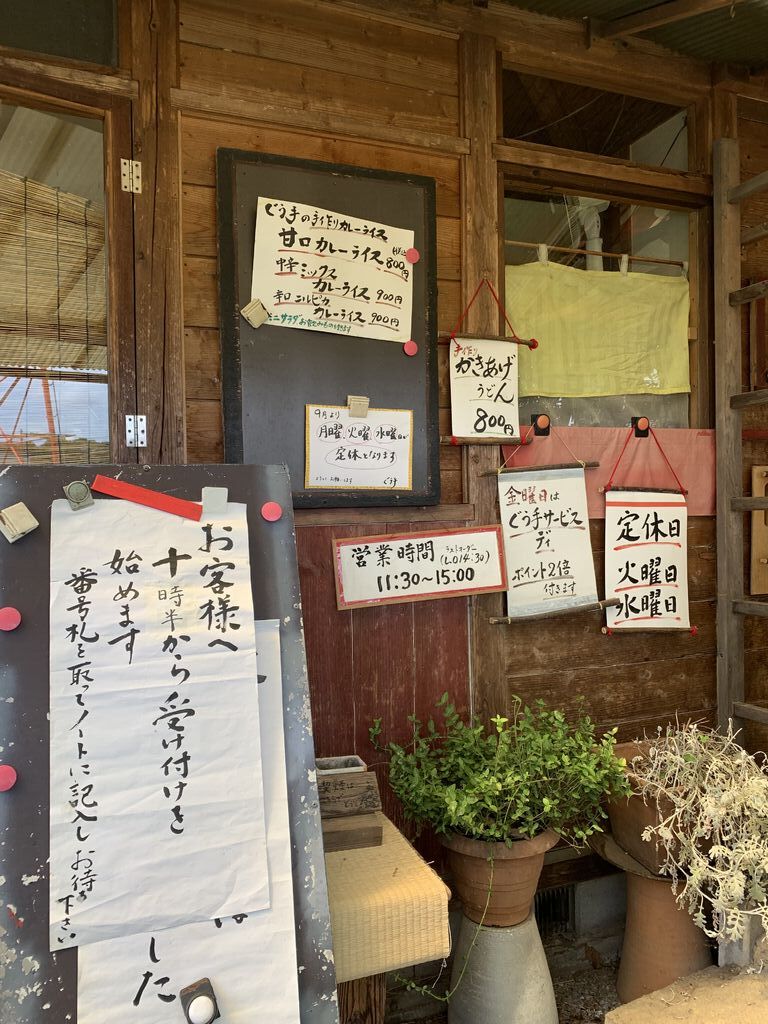 ぐう手の手作りカレーライス
甘口カレーライス 税込 800円
中辛ミックス
カレーライス 900円
辛口ニルピカ
カレーライス 900円
ミニサラダ お宝なんこつ付きます
9月より
月曜、火曜、水曜日が
定休となります
ぐう手
手作り
かきあげ
うどん
800円
営業時間
ラストオーダー
(L.O14:30)
11:30〜15:00
金曜日は
ぐう手サービス
ディ
ポイント2倍
付きます
定休日
火曜日
水曜日
お客様へ
十時半から受け付けを
始めます
番号札を取ってノートに記入しお待ち
下さい
した